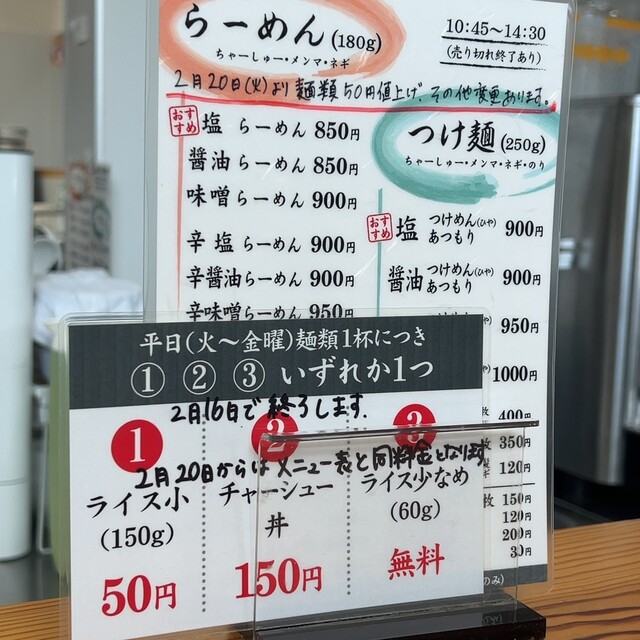 らーめん(180g)
ちゃーしゅー・メンマ・ネギ
10:45~14:30
(売り切れ終了あり)
2月20日(火)より麺類50円値上げ、その他変更あります。
おすすめ 塩 らーめん 850円
醤油 らーめん 850円
味噌 らーめん 900円
辛塩 らーめん 900円
辛醤油 らーめん 900円
辛味噌 らーめん 950円
つけ麺(250g)
ちゃーしゅー・メンマ・ネギ・のり
おすすめ 塩 つけめん(ひや) あつもり 900円
醤油 つけめん(ひや) あつもり 900円
950円
1000円
400円
350円
120円
枚 150円
120円
200円
30円
のみ)
平日(火~金曜)麺類1杯につき
① ② ③ いずれか1つ
2月16日で終了します.
2月20日からはメニュー表と同料金となります
1
ライス小
(150g)
50円
2
チャーシュー
丼
150円
3
ライス少なめ
(60g)
無料